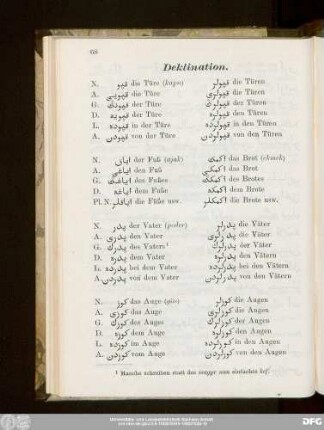 66
Deklination.
N. قپو die Türe (kapu) قپولر die Türen
A. قپويى die Türe قپولرى die Türen
G. قپونك der Türe قپولرك der Türen
D. قپويه der Türe قپولره den Türen
L. قپوده in der Türe قپولرده in den Türen
A. قپودن von der Türe قپولردن von den Türen
N. اياق der Fuß (ajak) اكمك das Brot (ekmek)
A. اياغى den Fuß اكمكى das Brot
G. اياغك des Fußes اكمكك des Brotes
D. اياغه dem Fuße اكمكه dem Brote
Pl. N. اياقلر die Füße usw. اكمكلر die Brote usw.
N. پدر der Vater (peder) پدرلر die Väter
A. پدرى den Vater پدرلرى die Väter
G. پدرك des Vaters¹ پدرلرك der Väter
D. پدره dem Vater پدرلره den Vätern
L. پدرده bei dem Vater پدرلرده bei den Vätern
A. پدردن von dem Vater پدرلردن von den Vätern
N. كوز das Auge (göz) كوزلر die Augen
A. كوزى das Auge كوزلرى die Augen
G. كوزك des Auges كوزلرك der Augen
D. كوزه dem Auge كوزلره den Augen
L. كوزده im Auge كوزلرده in den Augen
A. كوزدن vom Auge كوزلردن von den Augen
¹ Manche schreiben statt des